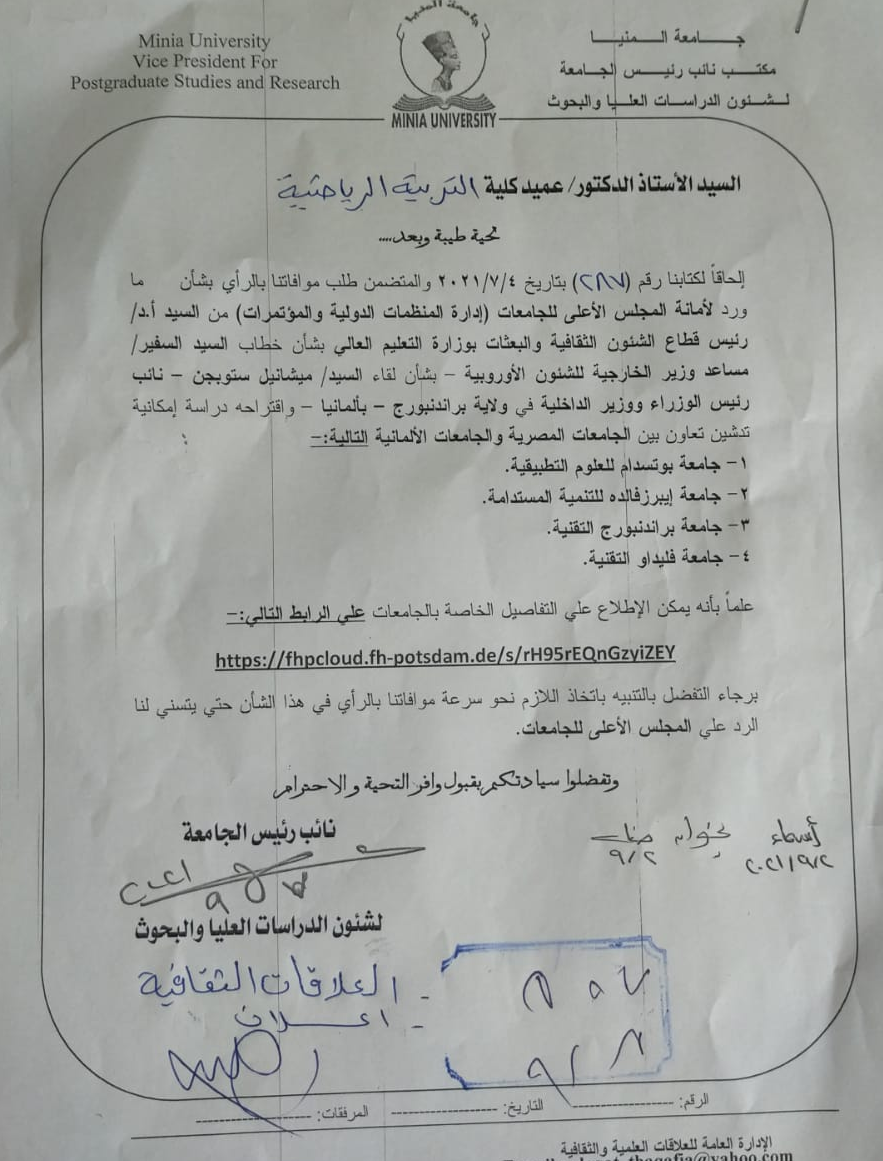 Minia University
Vice President For
Postgraduate Studies and Research
MINIA UNIVERSITY
جامعة المنيا
مكتب نائب رئيس الجامعة
لشئون الدراسات العليا والبحوث
السيد الأستاذ الدكتور/ عميد كلية التربية الرياضية
تحية طيبة وبعد....
إلحاقاً لكتابنا رقم (٢٨٧) بتاريخ ٢٠٢١/٧/٤ والمتضمن طلب موافاتنا بالرأي بشأن ما
ورد لأمانة المجلس الأعلى للجامعات (إدارة المنظمات الدولية والمؤتمرات) من السيد أ.د/
رئيس قطاع الشئون الثقافية والبعثات بوزارة التعليم العالي بشأن خطاب السيد السفير/
مساعد وزير الخارجية للشئون الأوروبية – بشأن لقاء السيد/ ميشائيل ستوبجن – نائب
رئيس الوزراء ووزير الداخلية في ولاية براندنبورج – بألمانيا – واقتراحه دراسة إمكانية
تدشين تعاون بين الجامعات المصرية والجامعات الألمانية التالية:–
١– جامعة بوتسدام للعلوم التطبيقية.
٢– جامعة إيبرزفالده للتنمية المستدامة.
٣– جامعة براندنبورج التقنية.
٤– جامعة فليداو التقنية.
علماً بأنه يمكن الإطلاع علي التفاصيل الخاصة بالجامعات علي الرابط التالي:–
https://fhpcloud.fh-potsdam.de/s/rH95rEQnGzyiZEY
برجاء التفضل بالتنبيه باتخاذ اللازم نحو سرعة موافاتنا بالرأي في هذا الشأن حتي يتسني لنا
الرد علي المجلس الأعلى للجامعات.
وتفضلوا سيادتكم بقبول وافر التحية والاحترام
نائب رئيس الجامعة
أسماء
٢٠٢١/٩/٢
٩/٢
لشئون الدراسات العليا والبحوث
- العلاقات الثقافية
- اعلان
الرقم: التاريخ: المرفقات:
الإدارة العامة للعلاقات العلمية والثقافية